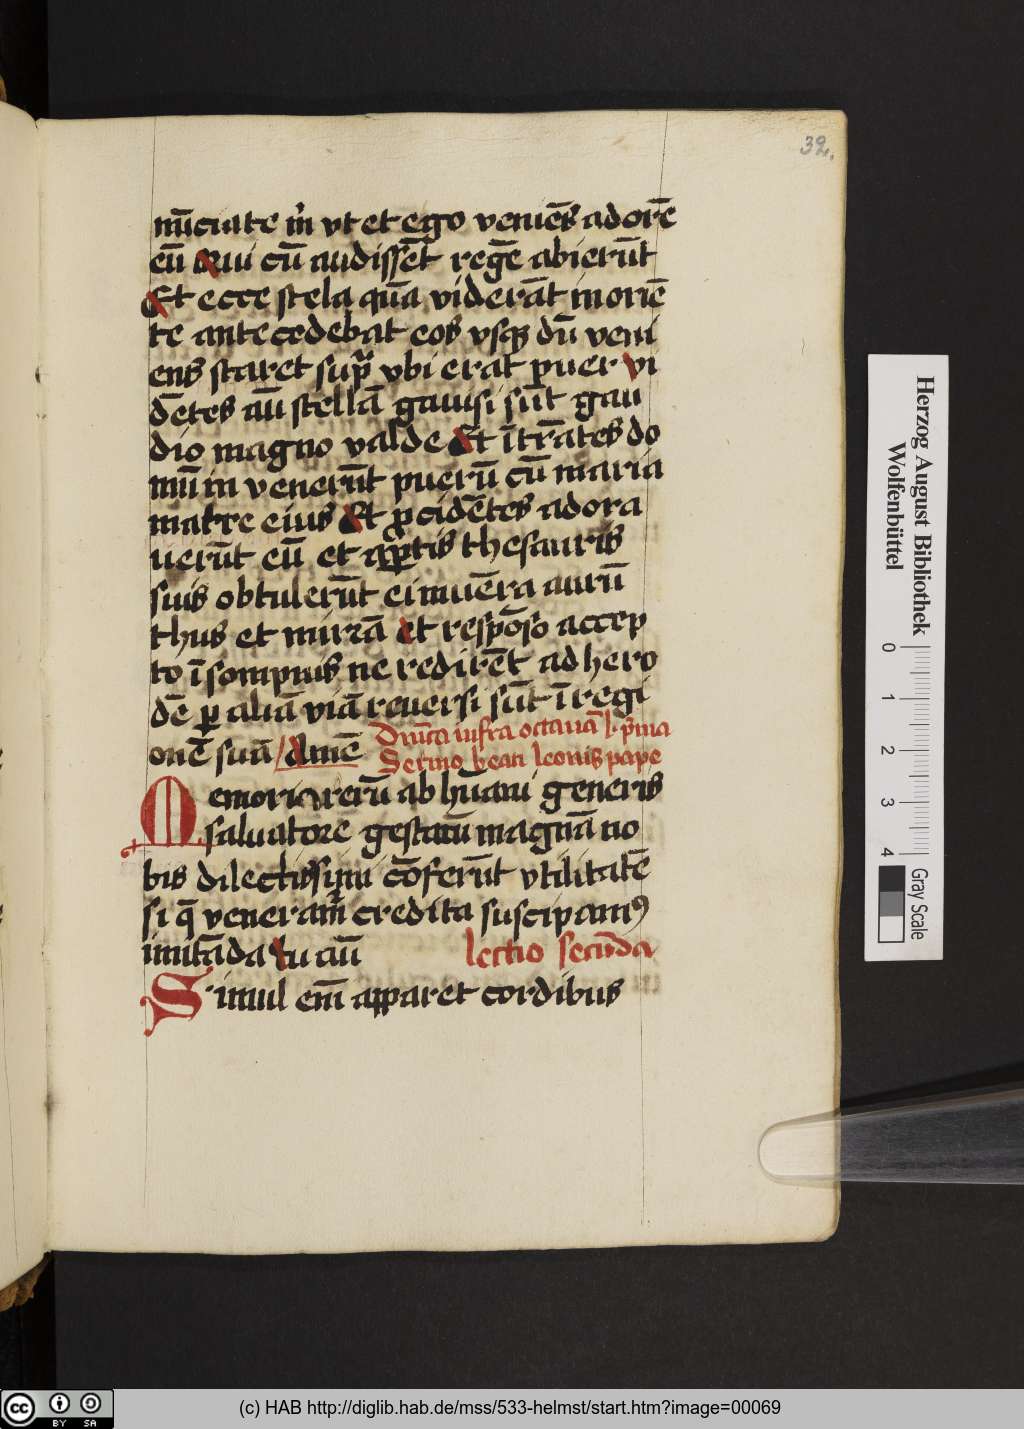 32.
nūciate m̄ vt et ego venieñs adorē
eū Qui cū audisset̄ regē abierūt
Et ecce stela quā viderāt in oriē
te antecedebat eos vsq dū veni
ens staret sup̄ vbi erat puer vi
dētes aū stellā gauisi sūt gau
dio magno valde Et ītrātes do
mū in venerūt puerū cū maria
matre eius Et ꝓcidētes adora
uerūt eū et apꝑtis thesauris
suis obtulerūt ei muēra aurū
thus et mirrā et respōso accep
to ī sompnis ne redirēt ad hero
dē ꝑ aliā viā reuersi sūt ī regi
onē suā Amē Dnīca infra octauā l. pīma
Sermo beati leonis pape
Memoria rerū ab hūani generis
saluatore gestarū magnā no
bis dilectissimi cōferūt vtilitatē
si q̄ veneram̄ credita suscipamꝰ
imitāda tu aūt lectio secūda
Simul em̄ apparet cordibus
Herzog August Bibliothek
Wolfenbüttel
0 1 2 3 4
Gray Scale
cc BY SA
(c) HAB http://diglib.hab.de/mss/533-helmst/start.htm?image=00069